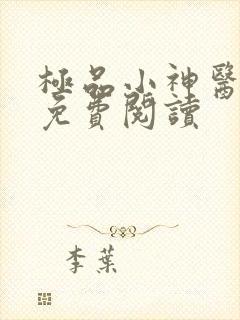 極品小神醫
免費閱讀
李葉